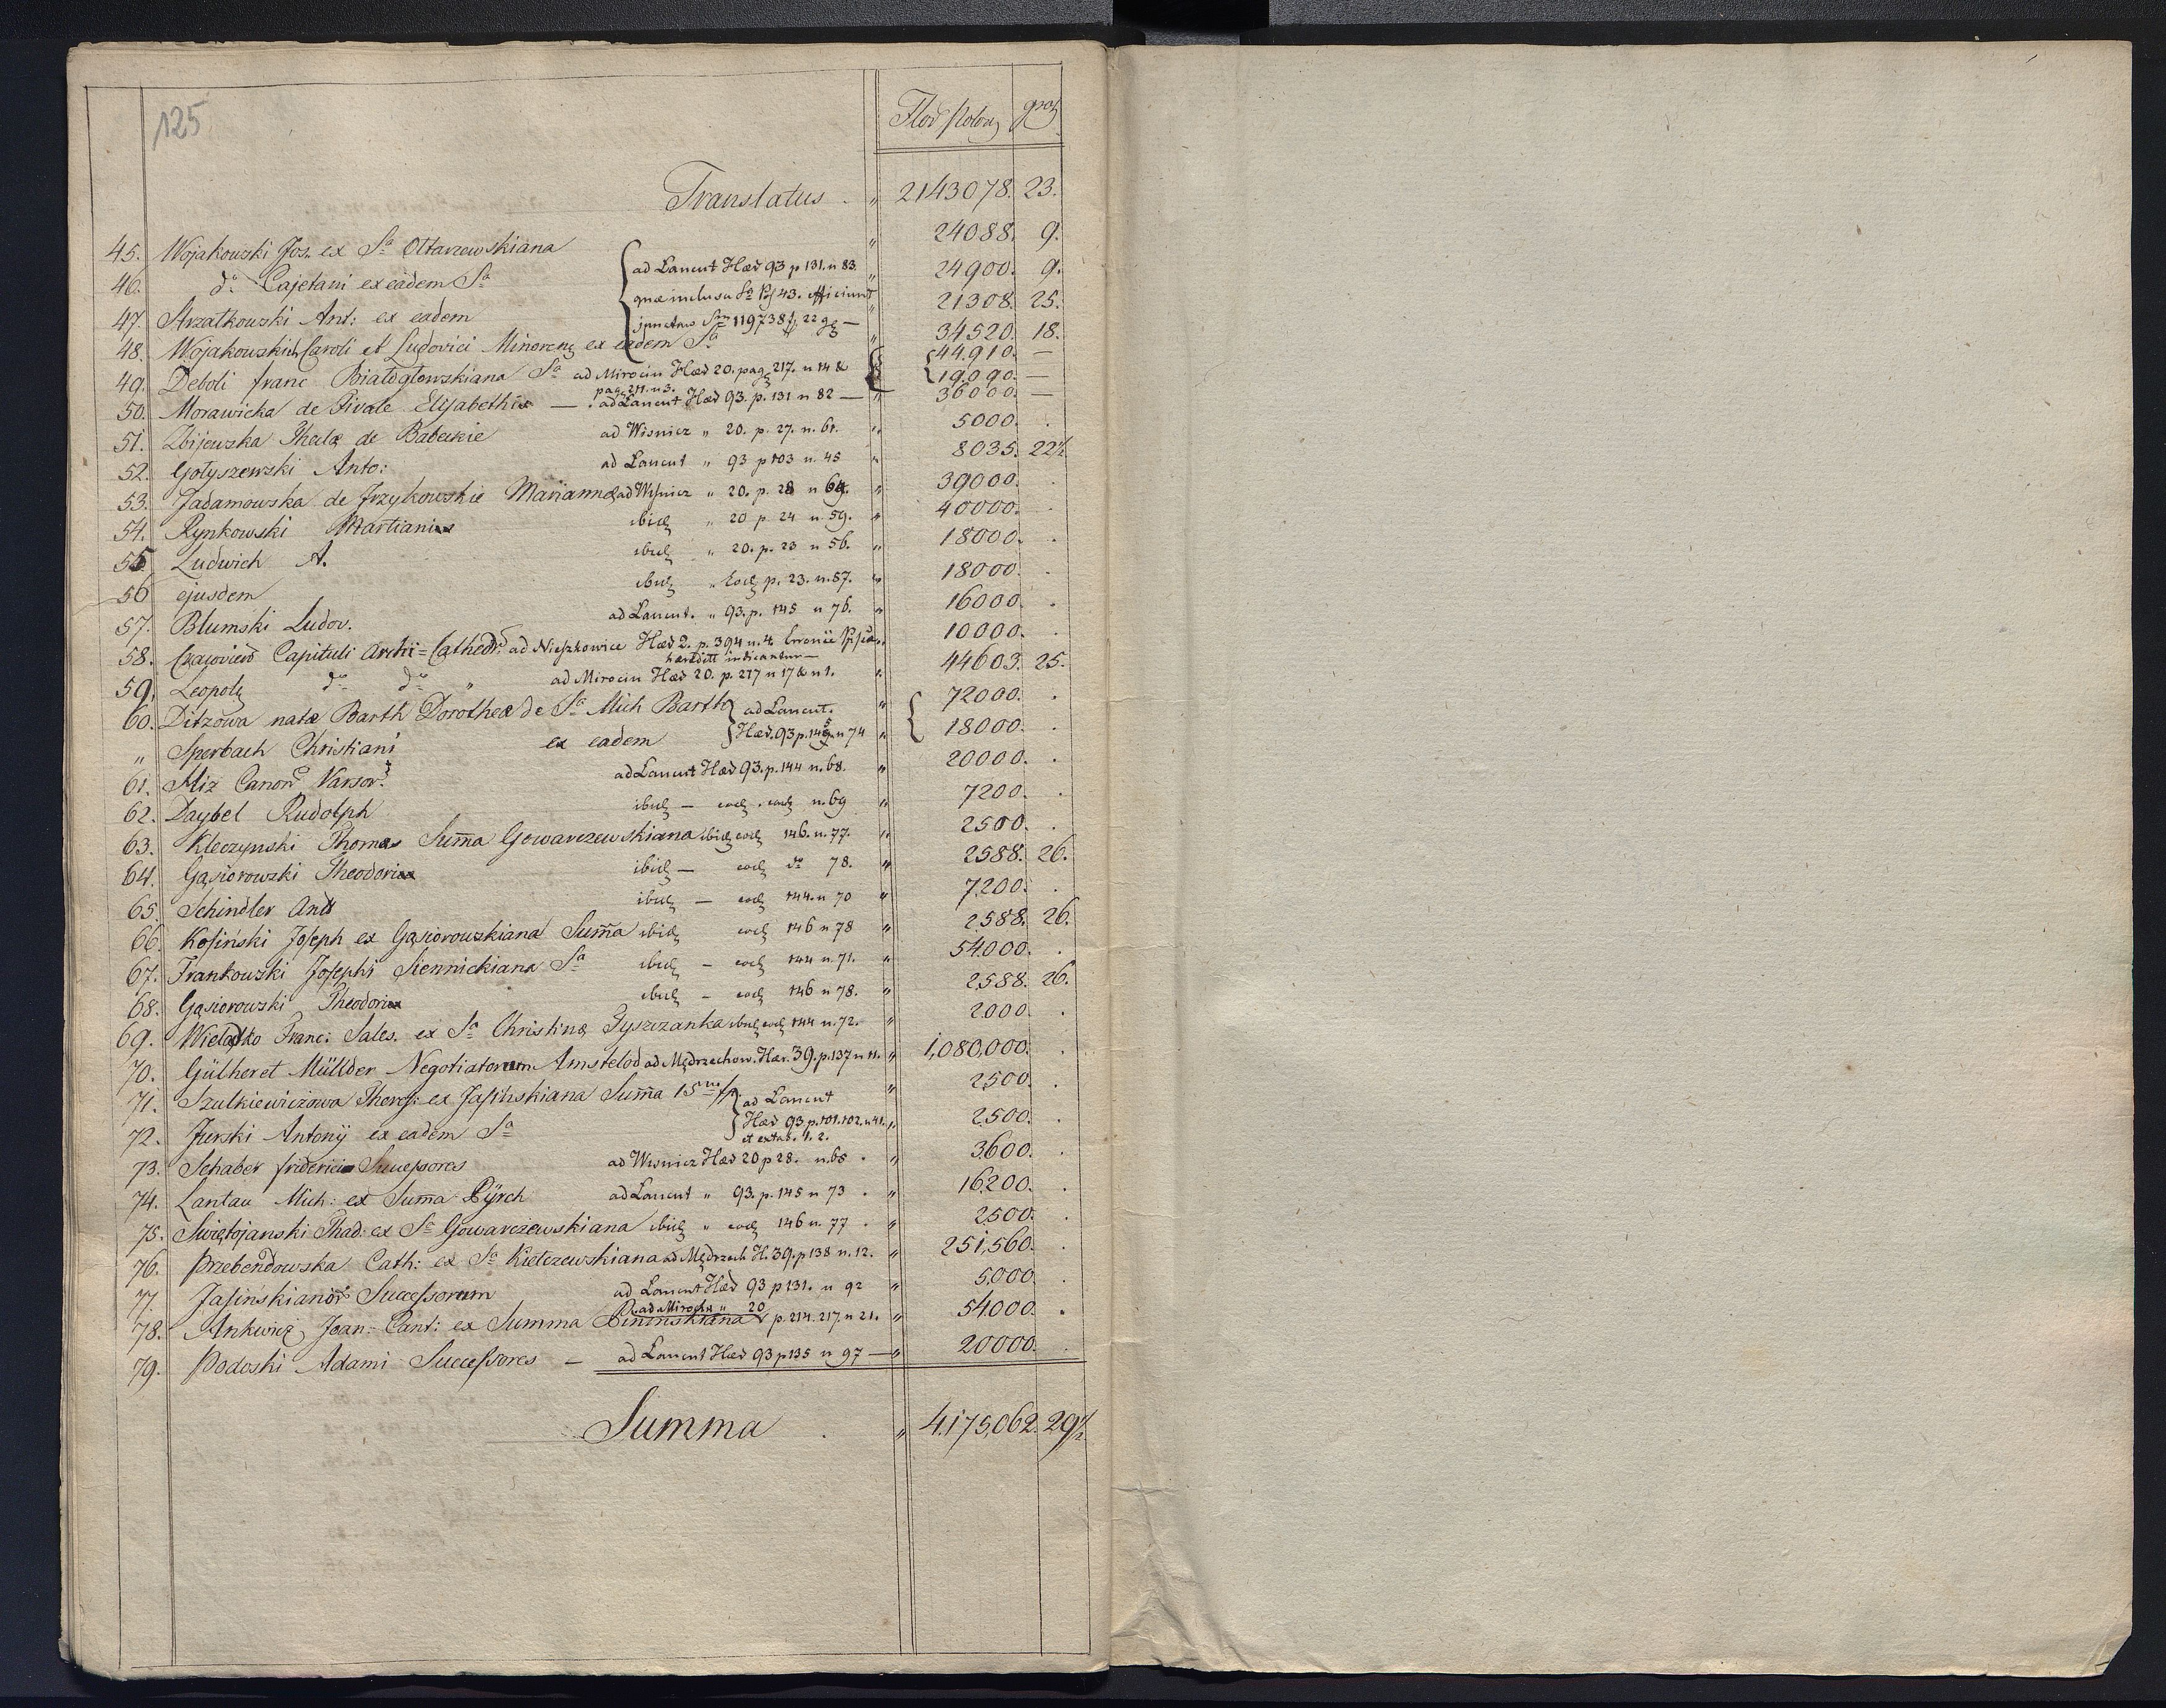 125
Flor Polon, gros
Translatus . " 2143078. 23.
45. Wojakowski Jos. ex Sa Ottarzewskiana " 24088. 9.
46. do Cajetani ex eadem Sa { ad Lancut Hær 93 p 131. n 83. " 24900. 9.
47. Strzatkowski Ant: ex eadem quæ inclusa Sa Ps 43. efficiunt " 21308. 25.
48. Wojakowskich Caroli et Ludovici Minoren, ex eadem Sa junctim Sum 119738 f, 22 g — " 34520. 18.
49. Deboli franc Białogłowskiana Sa ad Mirocin Hær 20. pag, 217. n 14 & pag. 211. n 3. { 44.910. —
19.090. —
50. Morawicka de Pivale Elisabethæ — ad Lancut Hær 93. p. 131 n 82 — " 36000. —
51. Zbijewska Theclæ de Babeckie ad Wisnicz " 20. p. 27. n. 61. " 5000. .
52. Gołyszewski Anto: ad Lancut " 93 p 103 n. 45 " 8035. 22½
53. Jadamowska de Jrzykowskie Mariannæ ad Wisnicz " 20. p. 28 n 64. " 39000. .
54. Rynkowski Martiani ibid, " 20 p. 24 n. 59. " 40000. .
55 Ludwich A. ibid, " 20. p. 23 n 56. " 18000. .
56 ejusdem ibid, " Eod, p. 23. n. 57. " 18000. .
57. Blumski Ludov. ad Lancut. " 93. p. 145 n 76. " 16000. .
58. Cracovien Capituli Archi=Cathedr. ad Nieszkowice Hær 2. p. 394 n. 4 Erronie " 10000. .
hæredit indicantur —
59. Leopol, do do " ad Mirocin Hær 20. p. 217 n 17 & n 1. " 44603. 25.
60. Ditzowa natæ Barth Dorotheæ de Sa Mich Barth } ad Lancut. " { 72000. .
" Sperbach Christiani ex eadem } Hær. 93 p. 145 n 74 " 18000. .
61. Miz Canon Varsov. ad Lancut Hær 93. p. 144 n. 68. " 20000. .
62. Daybel Rudolph ibid, — eod, . eod, n. 69 " 7200. .
63. Kleczynski Thomas Summa Gowarczewskiana ibid, eod, 146. n. 77. " 2500. .
64. Gąsiorowski Theodori ibid, — eod, do 78. " 2588. 26.
65. Schindler And ibid, — eod, 144. n 70 " 7200. .
66. Kosiński Joseph ex Gąsiorowskiana Summa ibid, eod, 146 n 78 " 2588. 26.
67. Frankowski Josephi Siennickiana Sa ibid, — eod, 144 n. 71. " 54000. .
68. Gąsiorowski Theodori ibid, — eod, 146 n 78. " 2588. 26.
69. Wielądko Franc: Sales. ex Sa Christinæ Tyszczanka ibid, eod, 144 n. 72. " 2000. .
70. Gülher et Müllder Negotiatorum Amstelod ad Mędrzechow. Hær. 39. p. 137 n 11. " 1,080,000. .
71. Szulkiewiczowa Theres: ex Jasinskiana Summa 15 } ad Lancut " 2500. .
72. Jurski Antonij ex eadem Sa } Hær 93 p. 101. 102. n 41. " 2500. .
et extab. 1. 2.
73. Schaber friderici Successores ad Wisnicz Hær 20 p 28. n. 65 . " 3600. .
74. Lantau Mich: ex Summa Pÿrch ad Lancut " 93. p. 145 n 73 . " 16200. .
75. Swiętojanski Thad: ex Sa Gowarczewskiana ibid, " eod, 146 n. 77 . " 2500. .
76. Przebendowska Cath: ex Sa Kiełczewskiana ad Mędrzech H. 39. p 138 n. 12. " 251,560. .
77. Jasinskianor Successorum ad Lancut Hær 93 p 131. n 92 " 5000. .
78. Ankwicz, Joan: Cant: ex Summa Pininskiana ad Mirocin " 20 p. 214. 217. n 21. " 54000. .
79. Podoski Adami Successores — ad Lancut Hær 93 p 135 n 97 — " 20000. .
Summa . " 4,175,062. 29½